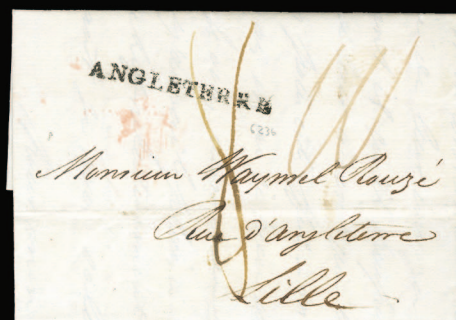 ANGLETERRE
6236
Monsieur Waymel Rouzé
Rue d'angleterre
Lille